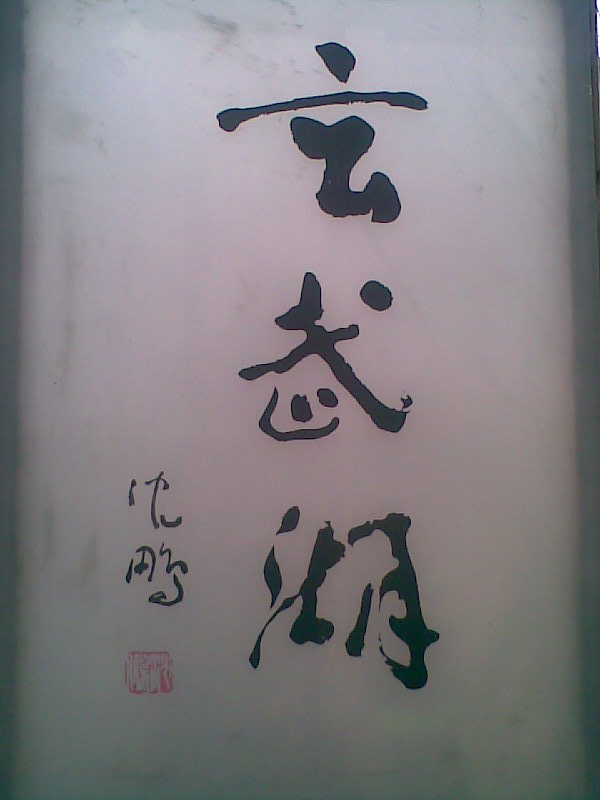 玄武湖
沈鹏